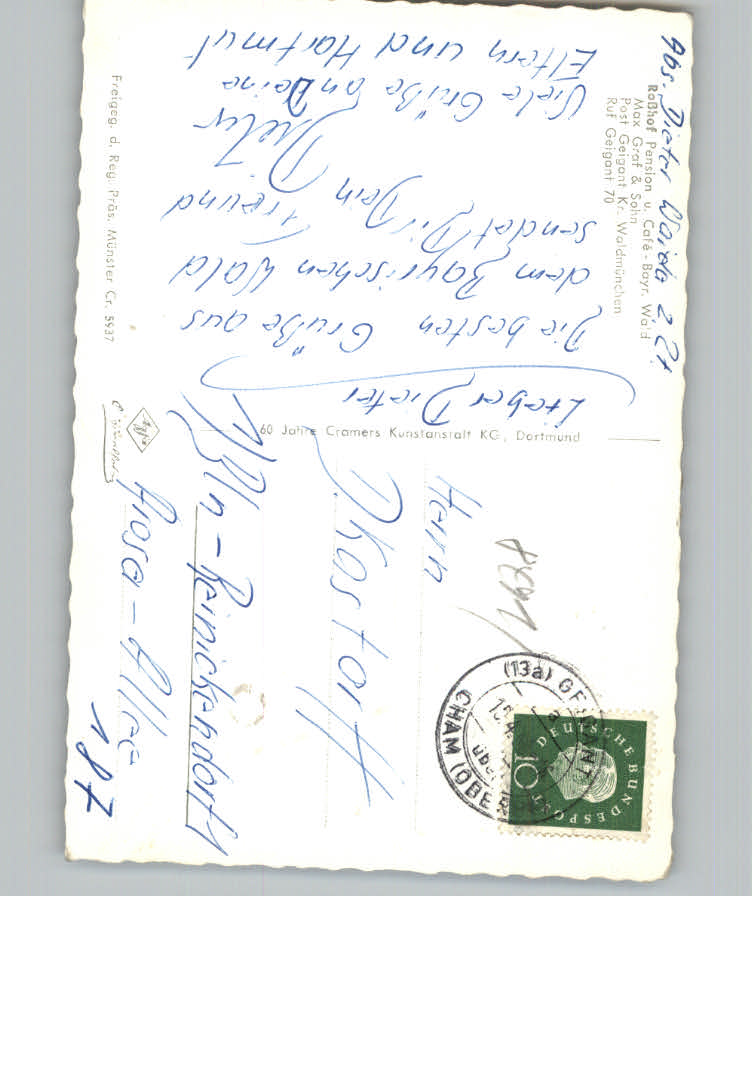 Abs. Dieter
Roßhof Pension u. Café - Bayr. Wald
Max Graf & Sohn
Post Geigant Kr. Waldmünchen
Ruf Geigant 70
Lieber Dieter
Die besten Grüße aus
dem Bayrischen Wald
sendet Dir Dein Freund
Dieter
Viele Grüße an Deine
Eltern und Hartmut
Freigeg. d. Reg. Präs. Münster Cr. 5937
60 Jahre Cramers Kunstanstalt KG, Dortmund
Agfa
(13a) GEIGANT
über
CHAM (OBERPF)
DEUTSCHE BUNDESPOST
10
Herrn
D. Kastorff
1 Bln - Reinickendorf 1
Arosa - Allee
187